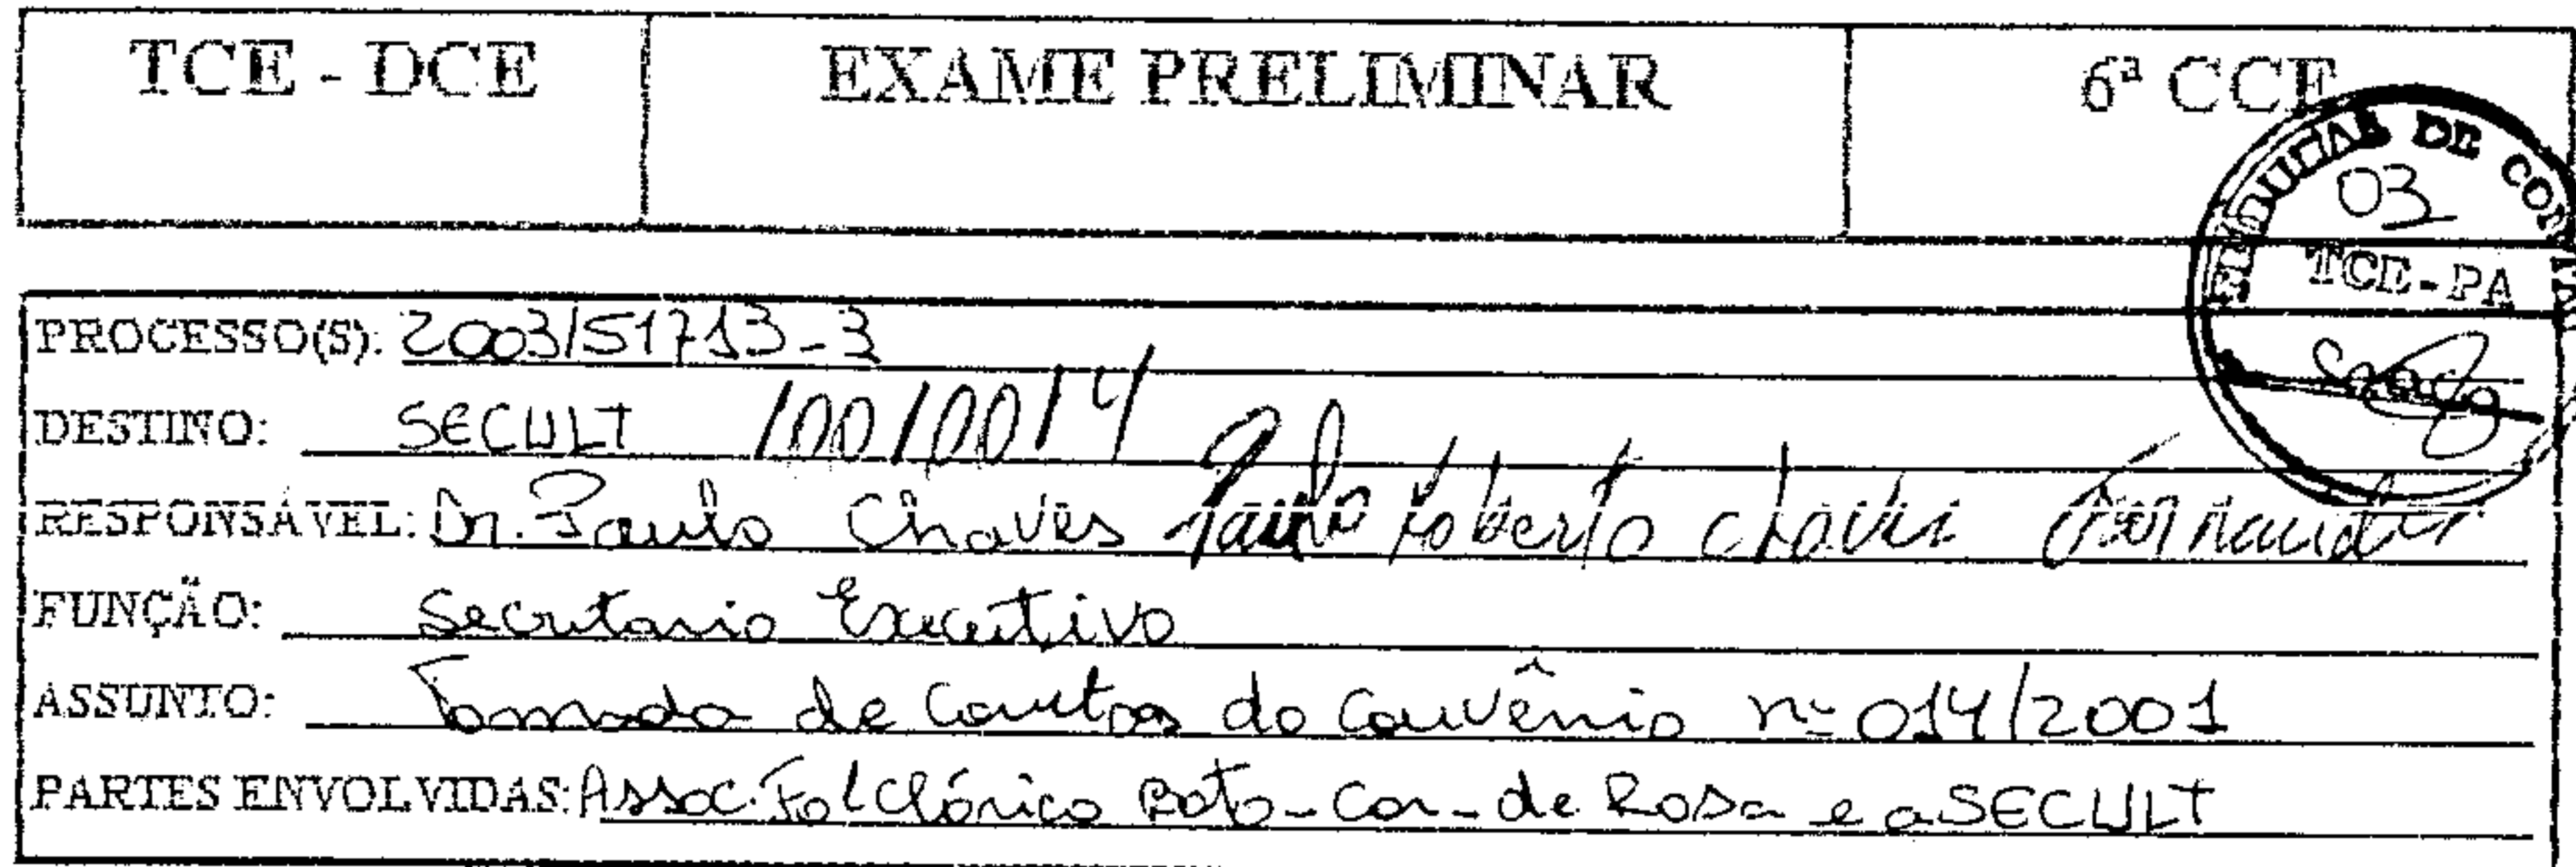 TCE - DCE
EXAME PRELIMINAR
6ª CCE
TRIBUNAL DE CONTAS
03
TCE - PA
PROCESSO(S): 2003/51713-3
DESTINO: SECULT
RESPONSÁVEL: Dr. Paulo Chaves Paulo Roberto Chaves Fernandes
FUNÇÃO: Secretario Executivo
ASSUNTO: Tomada de Contas do Convênio nº 014/2001
PARTES ENVOLVIDAS: Assoc. Folclórico Boto-Cor-de Rosa e a SECULT